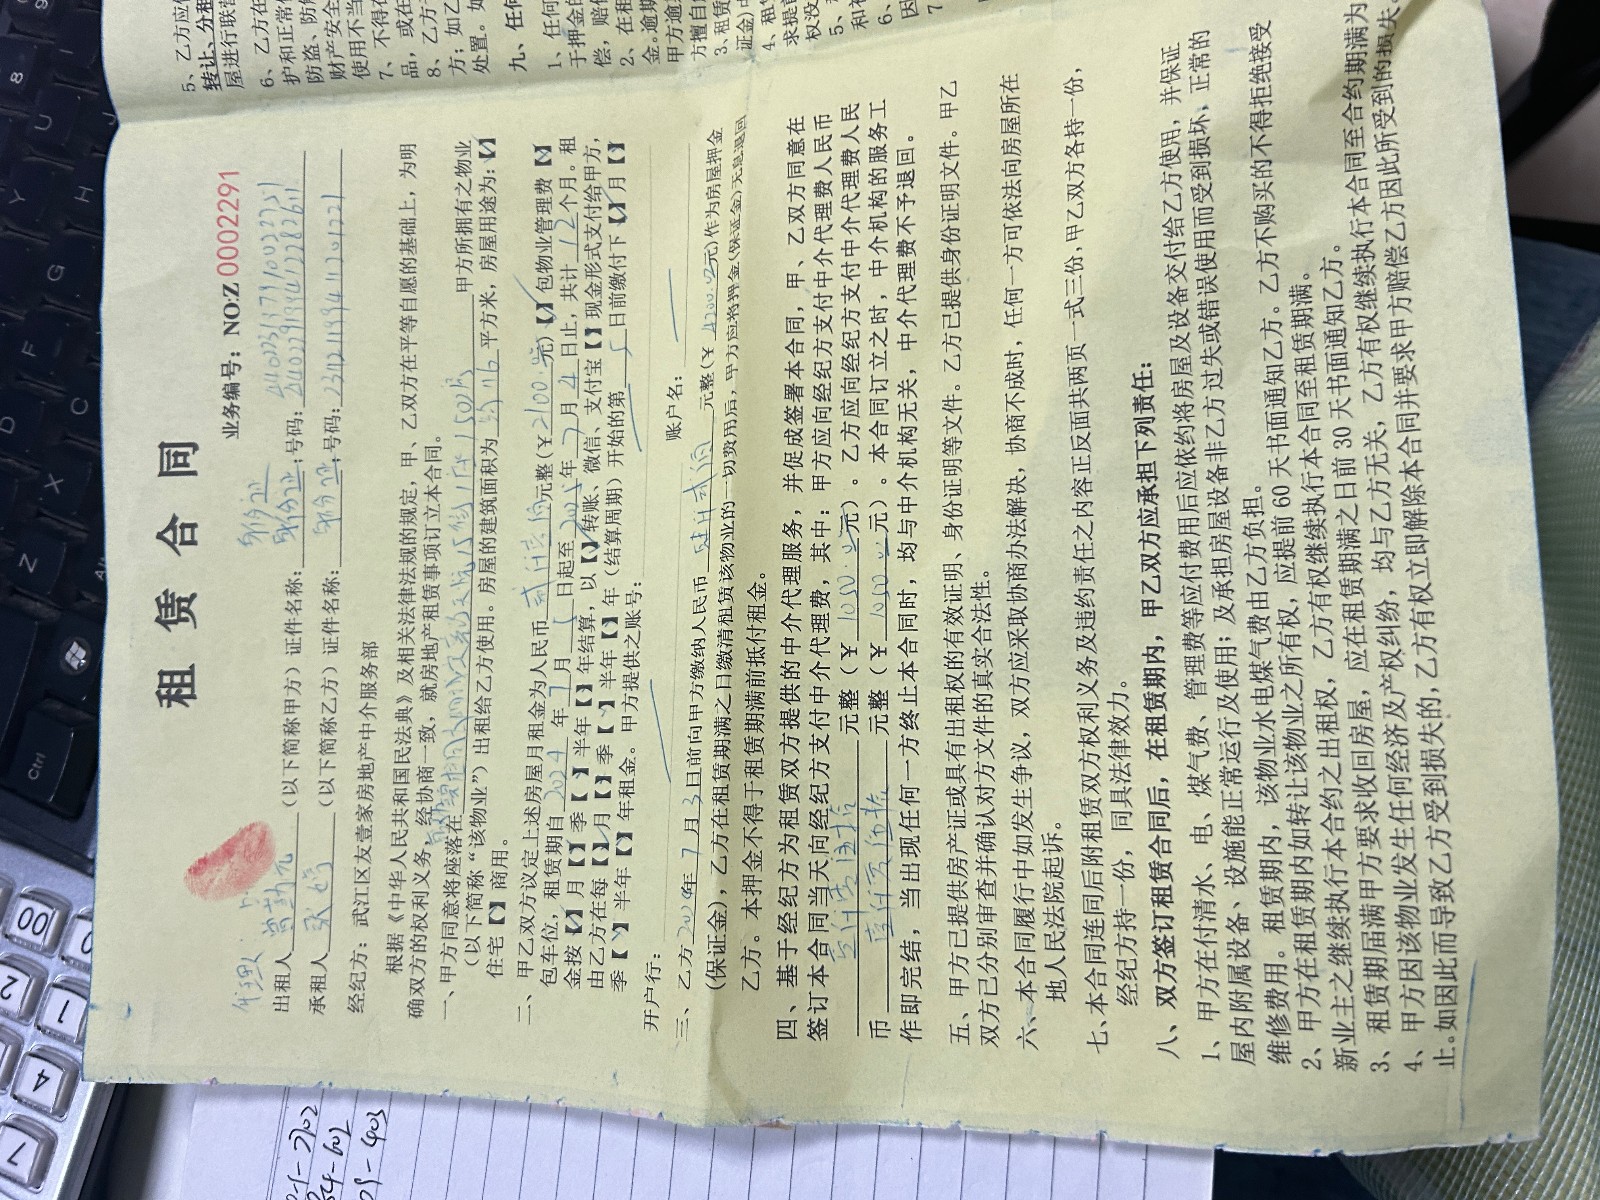 租赁合同
业务编号：NO:Z 0002291
代理人：
出租人（以下简称甲方）证件名称：身份证；号码：
承租人（以下简称乙方）证件名称：身份证；号码：
经纪方：武江区友壹家房地产中介服务部
根据《中华人民共和国民法典》及相关法律法规的规定，甲、乙双方在平等自愿的基础上，为明
确双方的权利义务，经协商一致，就房地产租赁事项订立本合同。
一、甲方同意将座落在甲方所拥有之物业
（以下简称“该物业”）出租给乙方使用。房屋的建筑面积为 约76 平方米，房屋用途为：【√】
住宅【 】商用。
二、甲乙双方议定上述房屋月租金为人民币 贰仟壹佰元整（￥2100.00元）【√】包物业管理费【 】
包车位，租赁期自 2024 年 7 月 5 日起至 2025 年 7 月 4 日止，共计 12 个月。租
金按【√】月【 】季【 】半年【 】年结算，以【√】转账、微信、支付宝【 】现金形式支付给甲方，
由乙方在每【√】月【 】季【 】半年【 】年（结算周期）开始的第 5 日前缴付下【√】月【 】
季【 】半年【 】年租金。甲方提供之账号：
开户行： 账户名：
三、乙方 2024年 7 月 3 日前向甲方缴纳人民币 肆仟贰佰 元整（￥4200.00元）作为房屋押金
（保证金），乙方在租赁期满之日缴清租赁该物业的一切费用后，甲方应将押金（保证金）无息退回
乙方。本押金不得于租赁期满前抵付租金。
四、基于经纪方为租赁双方提供的中介代理服务，并促成签署本合同，甲、乙双方同意在
签订本合同当天向经纪方支付中介代理费，其中：甲方应向经纪方支付中介代理费人民币
壹仟零伍拾 元整（￥1050.00元）。乙方应向经纪方支付中介代理费人民
币 壹仟零伍拾 元整（￥1050.00元）。本合同订立之时，中介机构的服务工
作即完结，当出现任何一方终止本合同时，均与中介机构无关，中介代理费不予退回。
五、甲方已提供房产证或具有出租权的有效证明、身份证明等文件。乙方已提供身份证明文件。甲乙
双方已分别审查并确认对方文件的真实合法性。
六、本合同履行中如发生争议，双方应采取协商办法解决，协商不成时，任何一方可依法向房屋所在
地人民法院起诉。
七、本合同连同后附租赁双方权利义务及违约责任之内容正反面共两页一式三份，甲乙双方各持一份，
经纪方持一份，同具法律效力。
八、双方签订租赁合同后，在租赁期内，甲乙双方应承担下列责任：
1、甲方在付清水、电、煤气费、管理费等应付费用后应依约将房屋及设备交付给乙方使用，并保证
屋内附属设备、设施能正常运行及使用；及承担房屋设备非乙方过失或错误使用而受到损坏，正常的
维修费用。租赁期内，该物业水电煤气费由乙方负担。
2、甲方在租赁期内如转让该物业之所有权，应提前 60 天书面通知乙方。乙方不购买的不得拒绝接受
新业主之继续执行本合约之出租权，乙方有权继续执行本合同至租赁期满。
3、租赁期届满甲方要求收回房屋，应在租赁期满之日前 30 天书面通知乙方。
4、甲方因该物业发生任何经济及产权纠纷，均与乙方无关，乙方有权继续执行本合同至合约期满为
止。如因此而导致乙方受到损失的，乙方有权立即解除本合同并要求甲方赔偿乙方因此所受到的损失。
5、乙方应
转让、分租
屋进行联营
6、乙方在
护和正常使
防盗、防
财产安全
使用不当
7、不得在
品，或在
8、乙方
方；如乙
处置。如
九、任何
1、任何
于押金的
偿，赔
2、在租
金。逾期
甲方逾
方擅自
3、租赁
证金）
4、租
求提前
权没
5、
和补
6、
因
7、